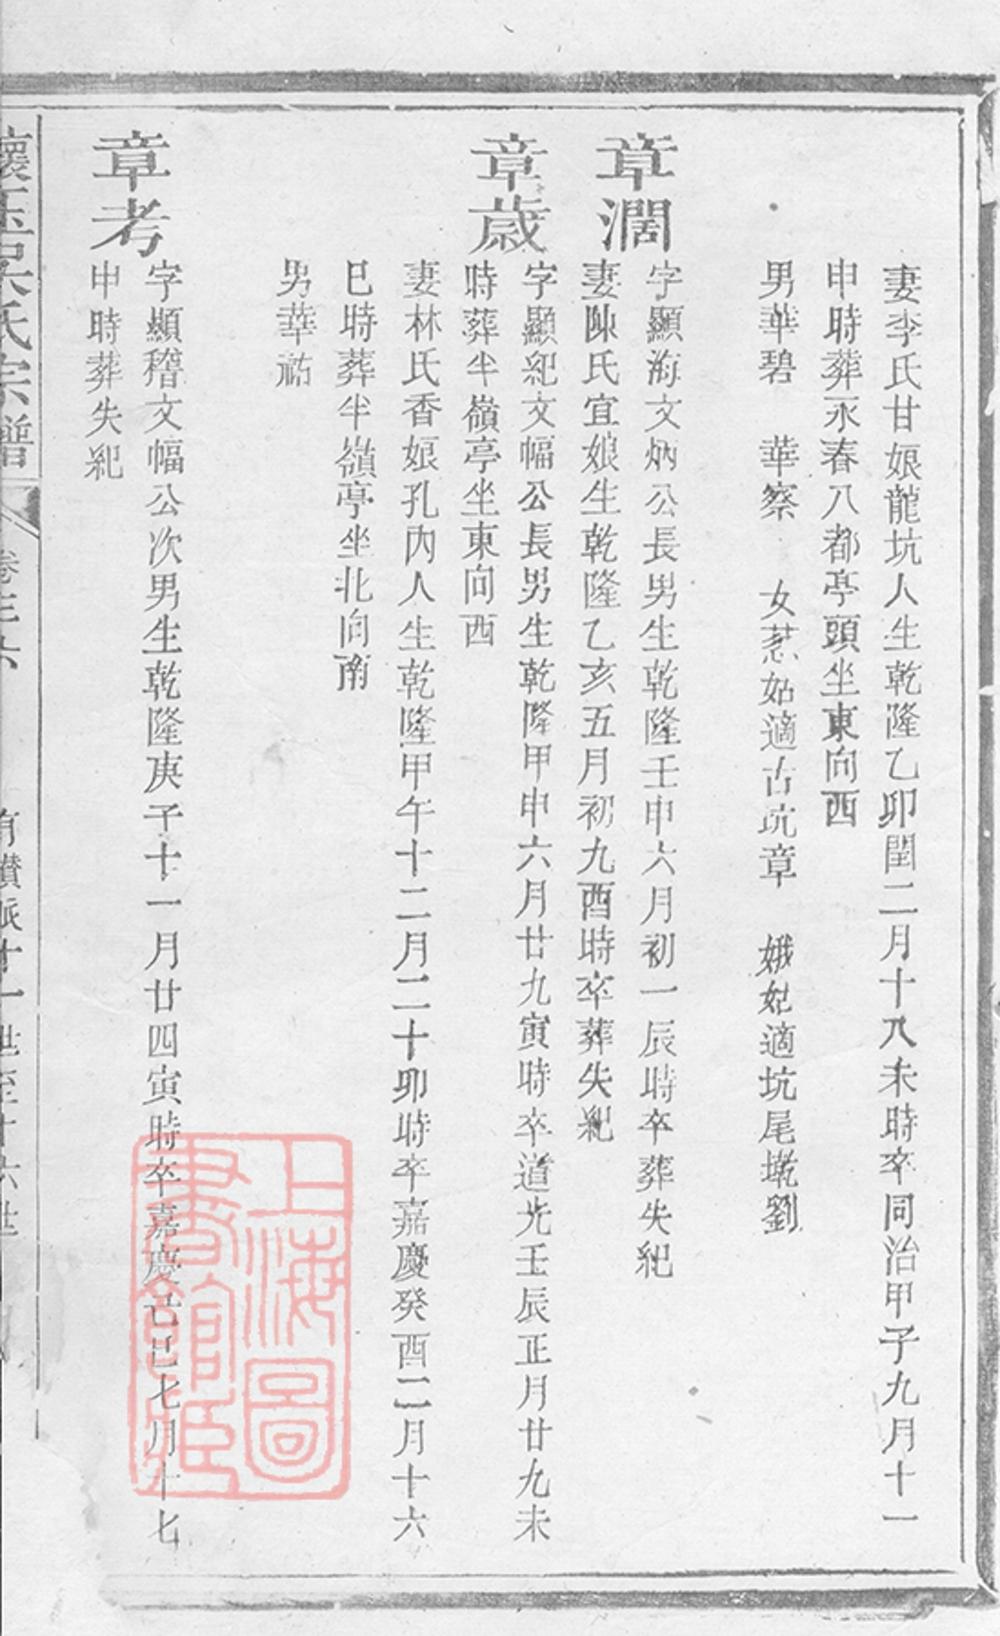 妻李氏甘娘龍坑人生乾隆乙卯閏二月十八未時卒同治甲子九月十一
申時葬永春八都亭頭坐東向西
男華碧 華察 女惹姑適古坑章 娥妃適坑尾墘劉
章濶
字顯海文炳公長男生乾隆壬申六月初一辰時卒葬失紀
妻陳氏宜娘生乾隆乙亥五月初九酉時卒葬失紀
章歲
字顯紀文幅公長男生乾隆甲申六月廿九寅時卒道光壬辰正月廿九未
時葬半嶺亭坐東向西
妻林氏香娘孔內人生乾隆甲午十二月二十卯時卒嘉慶癸酉二月十六
巳時葬半嶺亭坐北向南
男華祐
章考
字顯稽文幅公次男生乾隆庚子十一月廿四寅時卒嘉慶己巳七月十七
申時葬失紀
氏宗譜 卷三六 十一世至十六世
上海圖書館藏